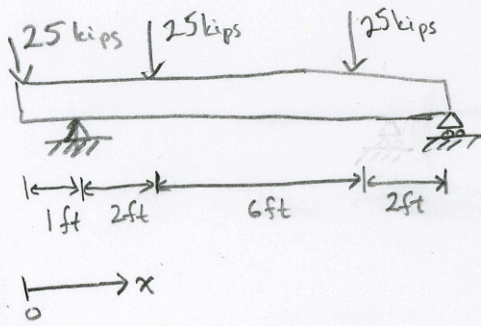 25 kips 25 kips 25 kips
1 ft 2 ft 6 ft 2 ft
x
0